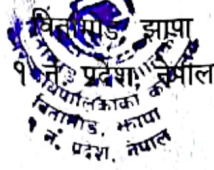 विर्तामोड, झापा
१ नं. प्रदेश, नेपाल
पालिकाको का
बिर्तामोड, झापा
१ नं. प्रदेश, नेपाल